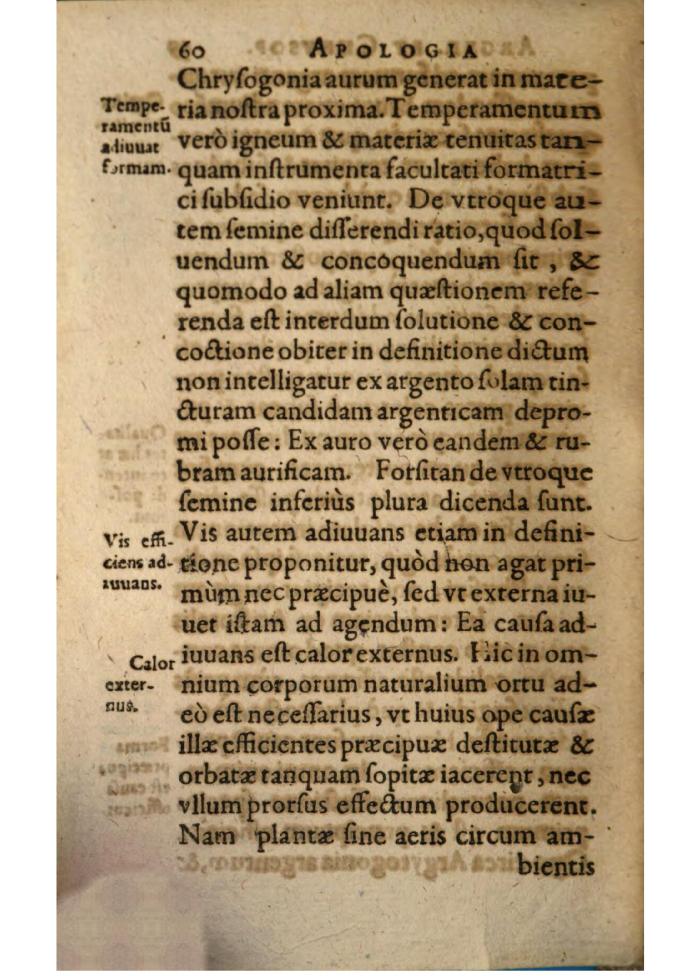 60 APOLOGIA
Chryſogonia aurum generat in mate-
ria noſtra proxima. Temperamentum
Tempe-
ramentū
adiuuat
formam.
verò igneum & materiæ tenuitas tan-
quam inſtrumenta facultati formatri-
ci ſubſidio veniunt. De vtroque au-
tem ſemine diſſerendi ratio, quod ſol-
uendum & concoquendum ſit, &
quomodo ad aliam quæſtionem refe-
renda eſt interdum ſolutione & con-
coctione obiter in definitione dictum
non intelligatur ex argento ſolam tin-
cturam candidam argenticam depro-
mi poſſe: Ex auro verò eandem & ru-
bram aurificam. Forſitan de vtroque
ſemine inferiùs plura dicenda ſunt.
Vis effi-
ciens ad-
iuuans.
Vis autem adiuuans etiam in defini-
tione proponitur, quòd non agat pri-
mùm nec præcipuè, ſed vt externa iu-
uet iſtam ad agendum: Ea cauſa ad-
Calor
exter-
nus.
iuuans eſt calor externus. Hic in om-
nium corporum naturalium ortu ad-
eò eſt neceſſarius, vt huius ope cauſæ
illæ efficientes præcipuæ deſtitutæ &
orbatæ tanquam ſopitæ iacerent, nec
vllum prorſus effectum producerent.
Nam plantæ ſine aeris circum am-
bientis